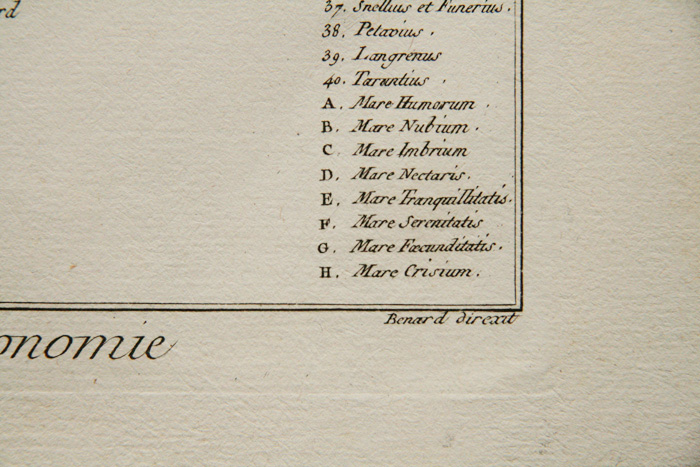 rd
37. Snellius et Funerius.
38. Petavius.
39. Langrenus
40. Taruntius.
A. Mare Humorum.
B. Mare Nubium.
C. Mare Imbrium
D. Mare Nectaris.
E. Mare Tranquillitatis.
F. Mare Serenitatis
G. Mare Fœcunditatis.
H. Mare Crisium.
Benard direxit
onomie